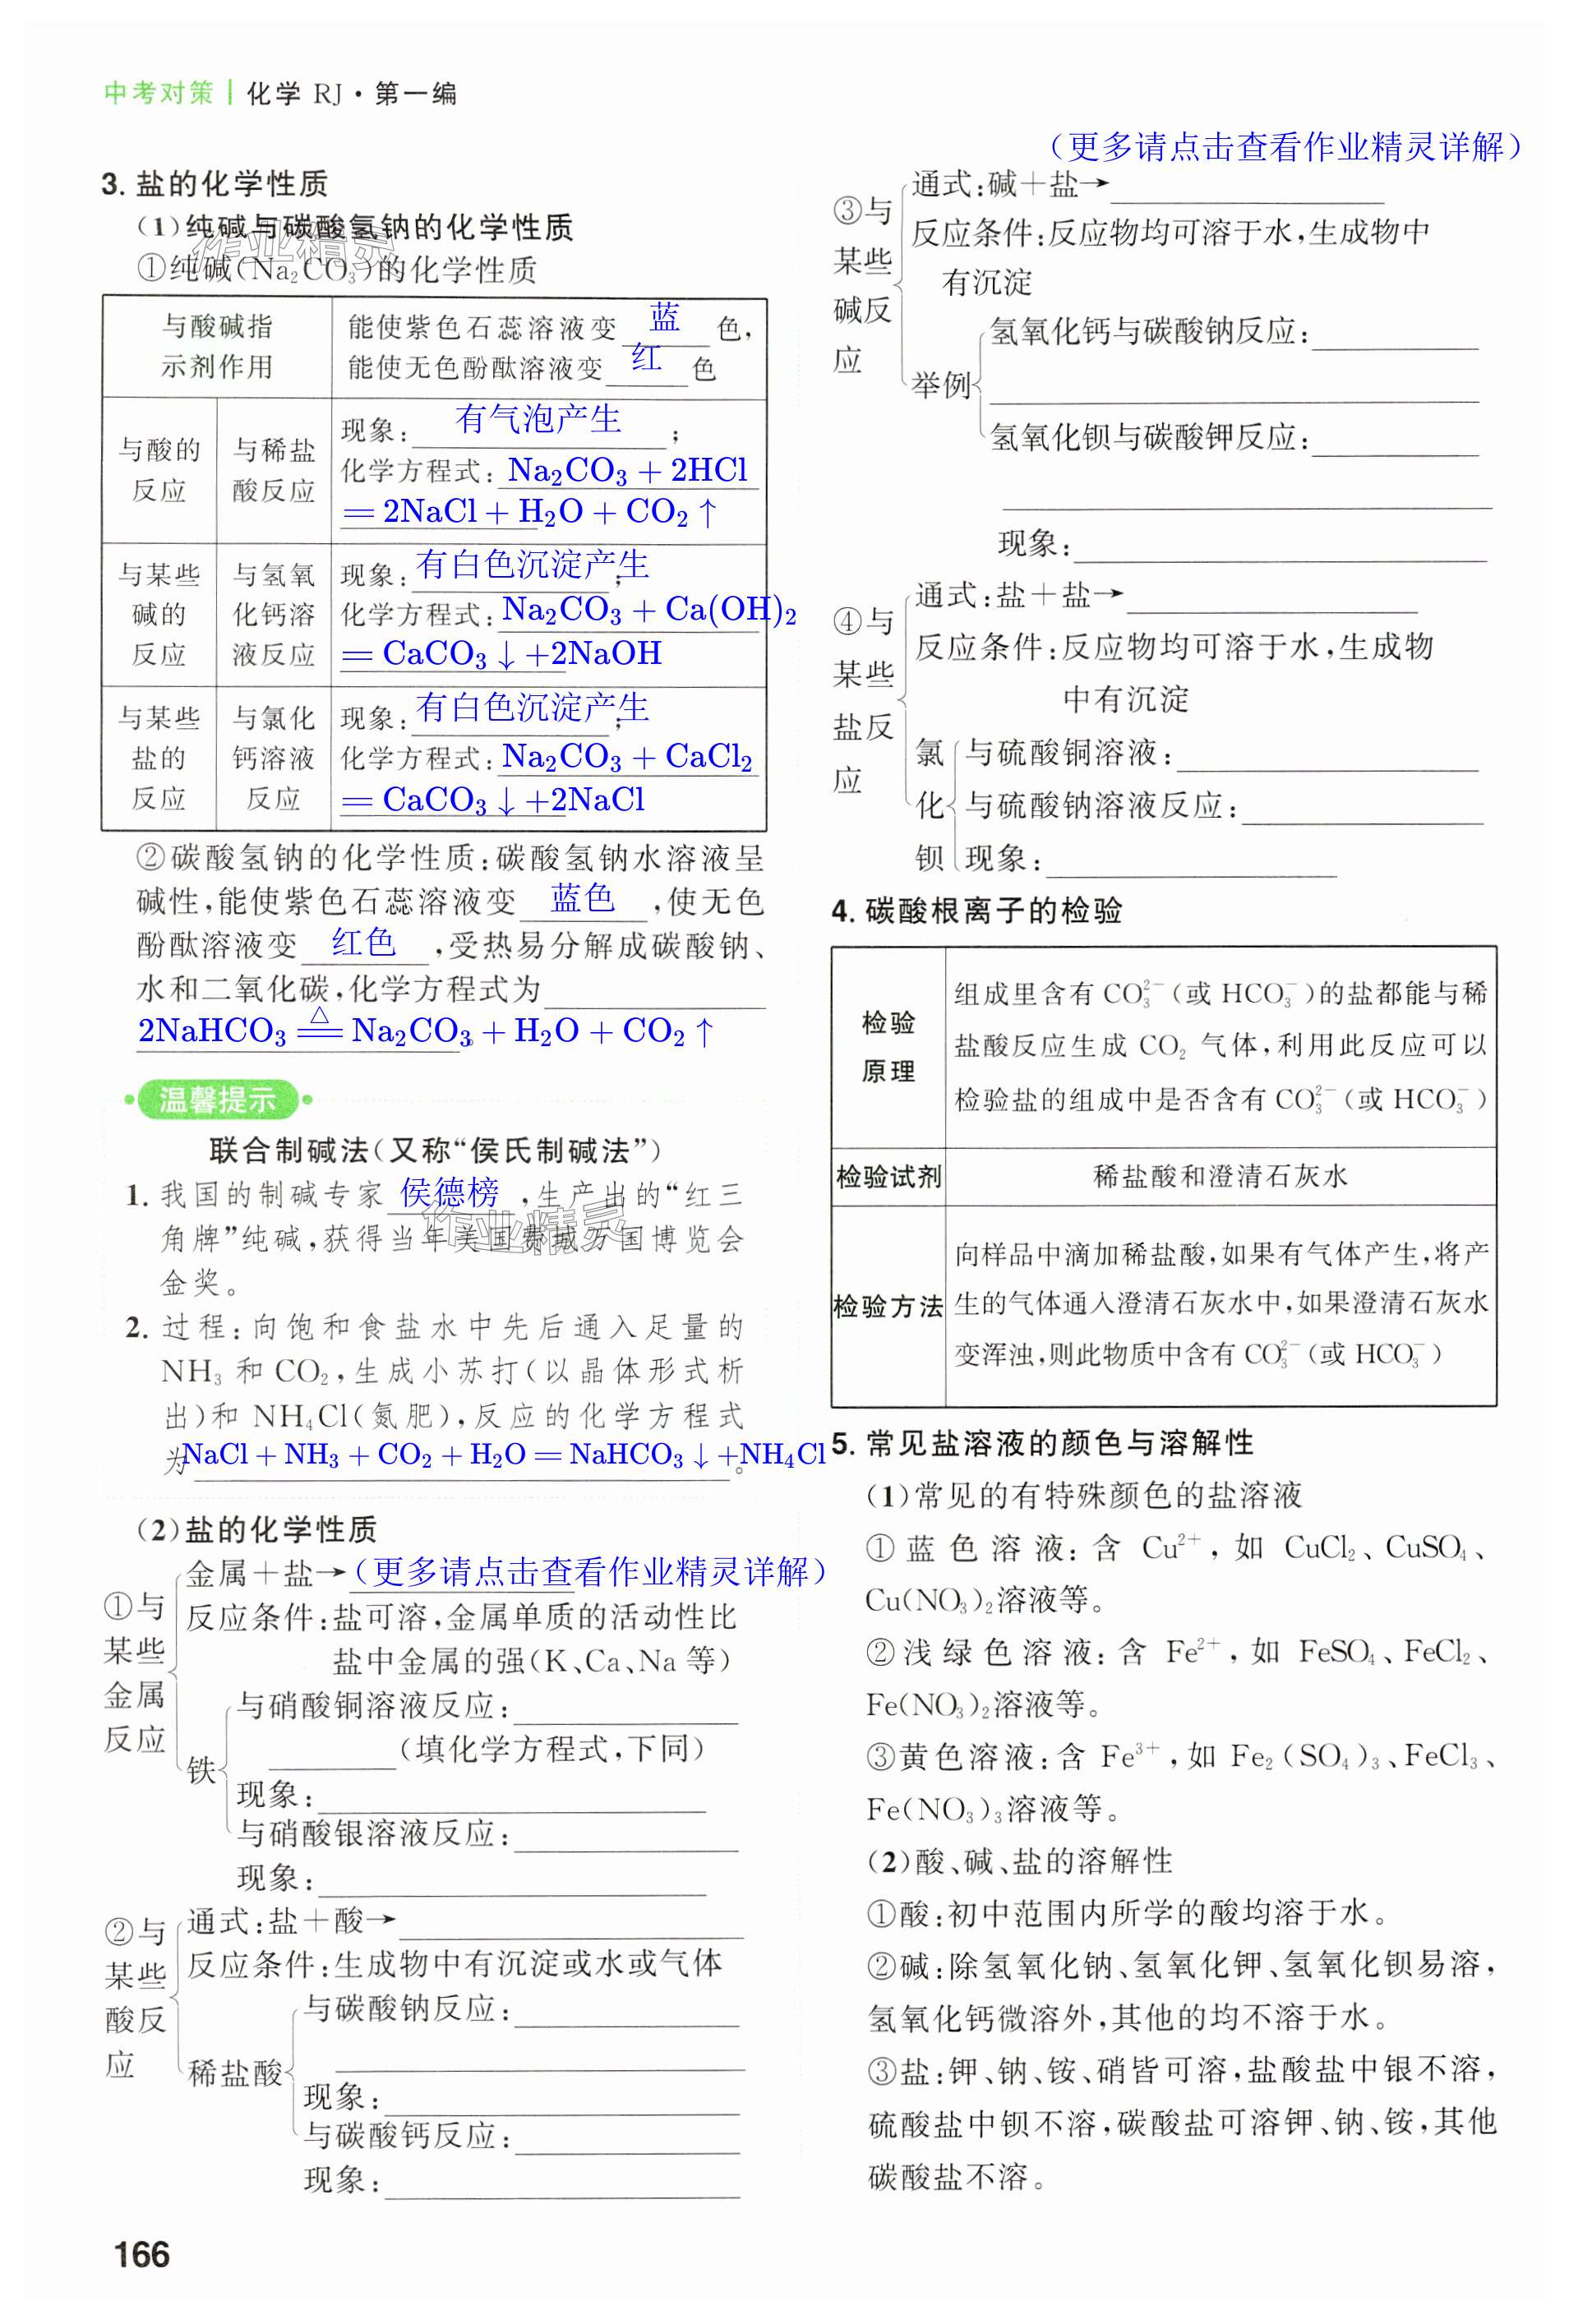 中考对策 | 化学 RJ·第一编
3. 盐的化学性质
(1)纯碱与碳酸氢钠的化学性质
①纯碱(Na₂CO₃)的化学性质
作业精灵
与酸碱指示剂作用
能使紫色石蕊溶液变 蓝 色,
能使无色酚酞溶液变 红 色
与酸的反应
与稀盐酸反应
现象: 有气泡产生 ;
化学方程式: Na₂CO₃ + 2HCl
= 2NaCl + H₂O + CO₂↑
与某些碱的反应
与氢氧化钙溶液反应
现象: 有白色沉淀产生 ;
化学方程式: Na₂CO₃ + Ca(OH)₂
= CaCO₃↓+2NaOH
与某些盐的反应
与氯化钙溶液反应
现象: 有白色沉淀产生 ;
化学方程式: Na₂CO₃ + CaCl₂
= CaCO₃↓+2NaCl
②碳酸氢钠的化学性质:碳酸氢钠水溶液呈
碱性,能使紫色石蕊溶液变 蓝色 ,使无色
酚酞溶液变 红色 ,受热易分解成碳酸钠、
水和二氧化碳,化学方程式为
2NaHCO₃ =△= Na₂CO₃ + H₂O + CO₂↑
温馨提示
联合制碱法(又称“侯氏制碱法”)
1. 我国的制碱专家 侯德榜 ,生产出的“红三
角牌”纯碱,获得当年美国费城万国博览会
金奖。
作业精灵
2. 过程:向饱和食盐水中先后通入足量的
NH₃ 和 CO₂,生成小苏打(以晶体形式析
出)和 NH₄Cl(氮肥),反应的化学方程式
为 NaCl + NH₃ + CO₂ + H₂O = NaHCO₃↓+NH₄Cl 。
(2)盐的化学性质
①与某些金属反应
金属+盐→ (更多请点击查看作业精灵详解)
反应条件:盐可溶,金属单质的活动性比
盐中金属的强(K、Ca、Na 等)
铁
与硝酸铜溶液反应:
(填化学方程式,下同)
现象:
与硝酸银溶液反应:
现象:
②与某些酸反应
通式:盐+酸→
反应条件:生成物中有沉淀或水或气体
稀盐酸
与碳酸钠反应:
现象:
与碳酸钙反应:
现象:
166
(更多请点击查看作业精灵详解)
③与某些碱反应
通式:碱+盐→
反应条件:反应物均可溶于水,生成物中
有沉淀
举例
氢氧化钙与碳酸钠反应:
氢氧化钡与碳酸钾反应:
现象:
④与某些盐反应
通式:盐+盐→
反应条件:反应物均可溶于水,生成物
中有沉淀
氯化钡
与硫酸铜溶液:
与硫酸钠溶液反应:
现象:
4. 碳酸根离子的检验
检验原理
组成里含有 CO₃²⁻(或 HCO₃⁻)的盐都能与稀
盐酸反应生成 CO₂ 气体,利用此反应可以
检验盐的组成中是否含有 CO₃²⁻(或 HCO₃⁻)
检验试剂
稀盐酸和澄清石灰水
检验方法
向样品中滴加稀盐酸,如果有气体产生,将产
生的气体通入澄清石灰水中,如果澄清石灰水
变浑浊,则此物质中含有 CO₃²⁻(或 HCO₃⁻)
5. 常见盐溶液的颜色与溶解性
(1)常见的有特殊颜色的盐溶液
①蓝色溶液:含 Cu²⁺,如 CuCl₂、CuSO₄、
Cu(NO₃)₂溶液等。
②浅绿色溶液:含 Fe²⁺,如 FeSO₄、FeCl₂、
Fe(NO₃)₂溶液等。
③黄色溶液:含 Fe³⁺,如 Fe₂(SO₄)₃、FeCl₃、
Fe(NO₃)₃溶液等。
(2)酸、碱、盐的溶解性
①酸:初中范围内所学的酸均溶于水。
②碱:除氢氧化钠、氢氧化钾、氢氧化钡易溶,
氢氧化钙微溶外,其他的均不溶于水。
③盐:钾、钠、铵、硝皆可溶,盐酸盐中银不溶,
硫酸盐中钡不溶,碳酸盐可溶钾、钠、铵,其他
碳酸盐不溶。